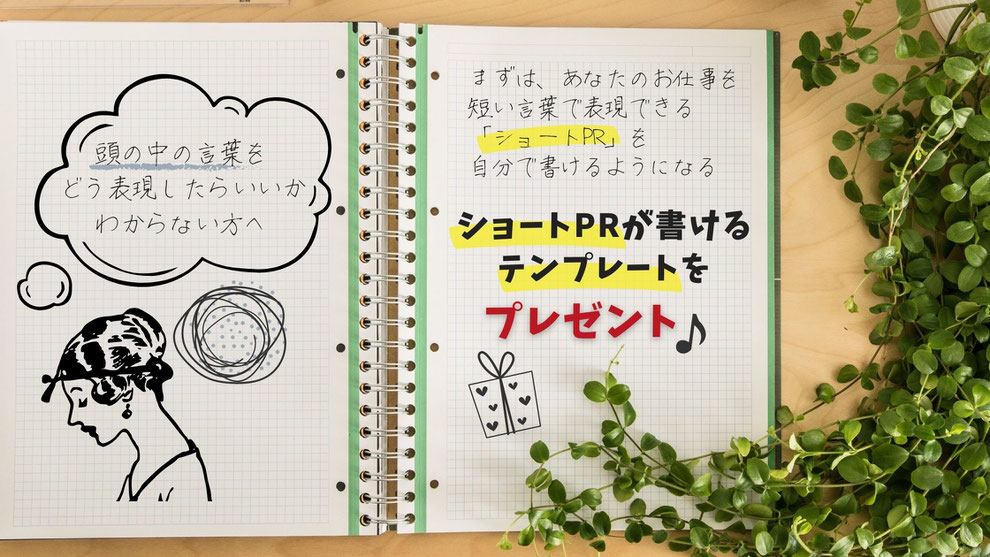 頭の中の言葉を
どう表現したらいいか
わからない方へ
まずは、あなたのお仕事を
短い言葉で表現できる
「ショートPR」を
自分で書けるようになる
ショートPRが書ける
テンプレートを
プレゼント♪